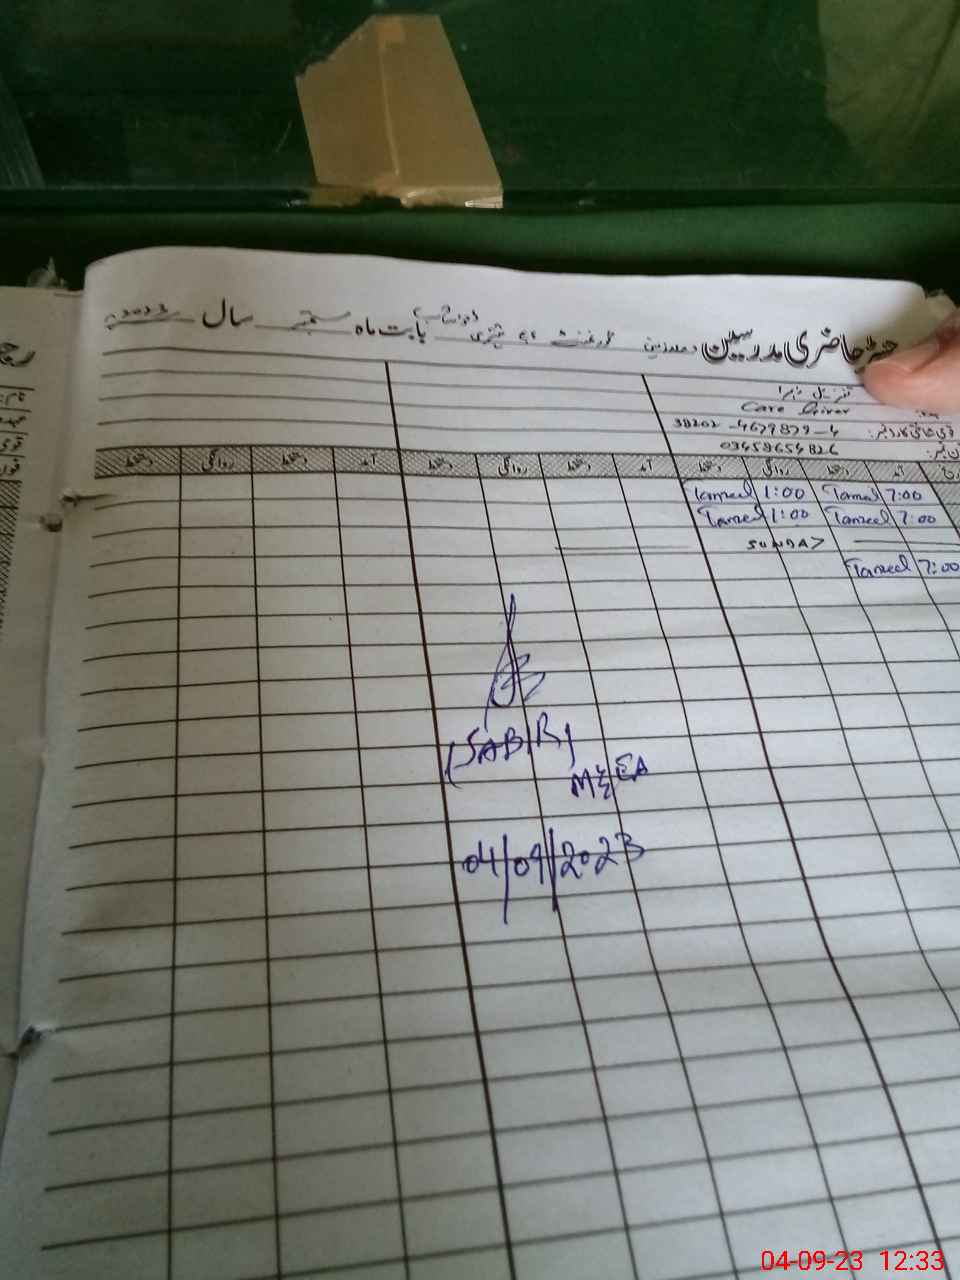 حاضری مدرسین بابت ماہ ستمبر سال 2023
Care Giver
38202-4679879-4
03458654826
آمد دستخط روانگی دستخط آمد دستخط روانگی دستخط آمد دستخط روانگی دستخط
7:00 Tanzeel 1:00 Tanzeel
7:00 Tanzeel 1:00 Tanzeel
SUNDAY
7:00 Tanzeel
(SABIR)
M&EA
04/09/2023
04-09-23 12:33